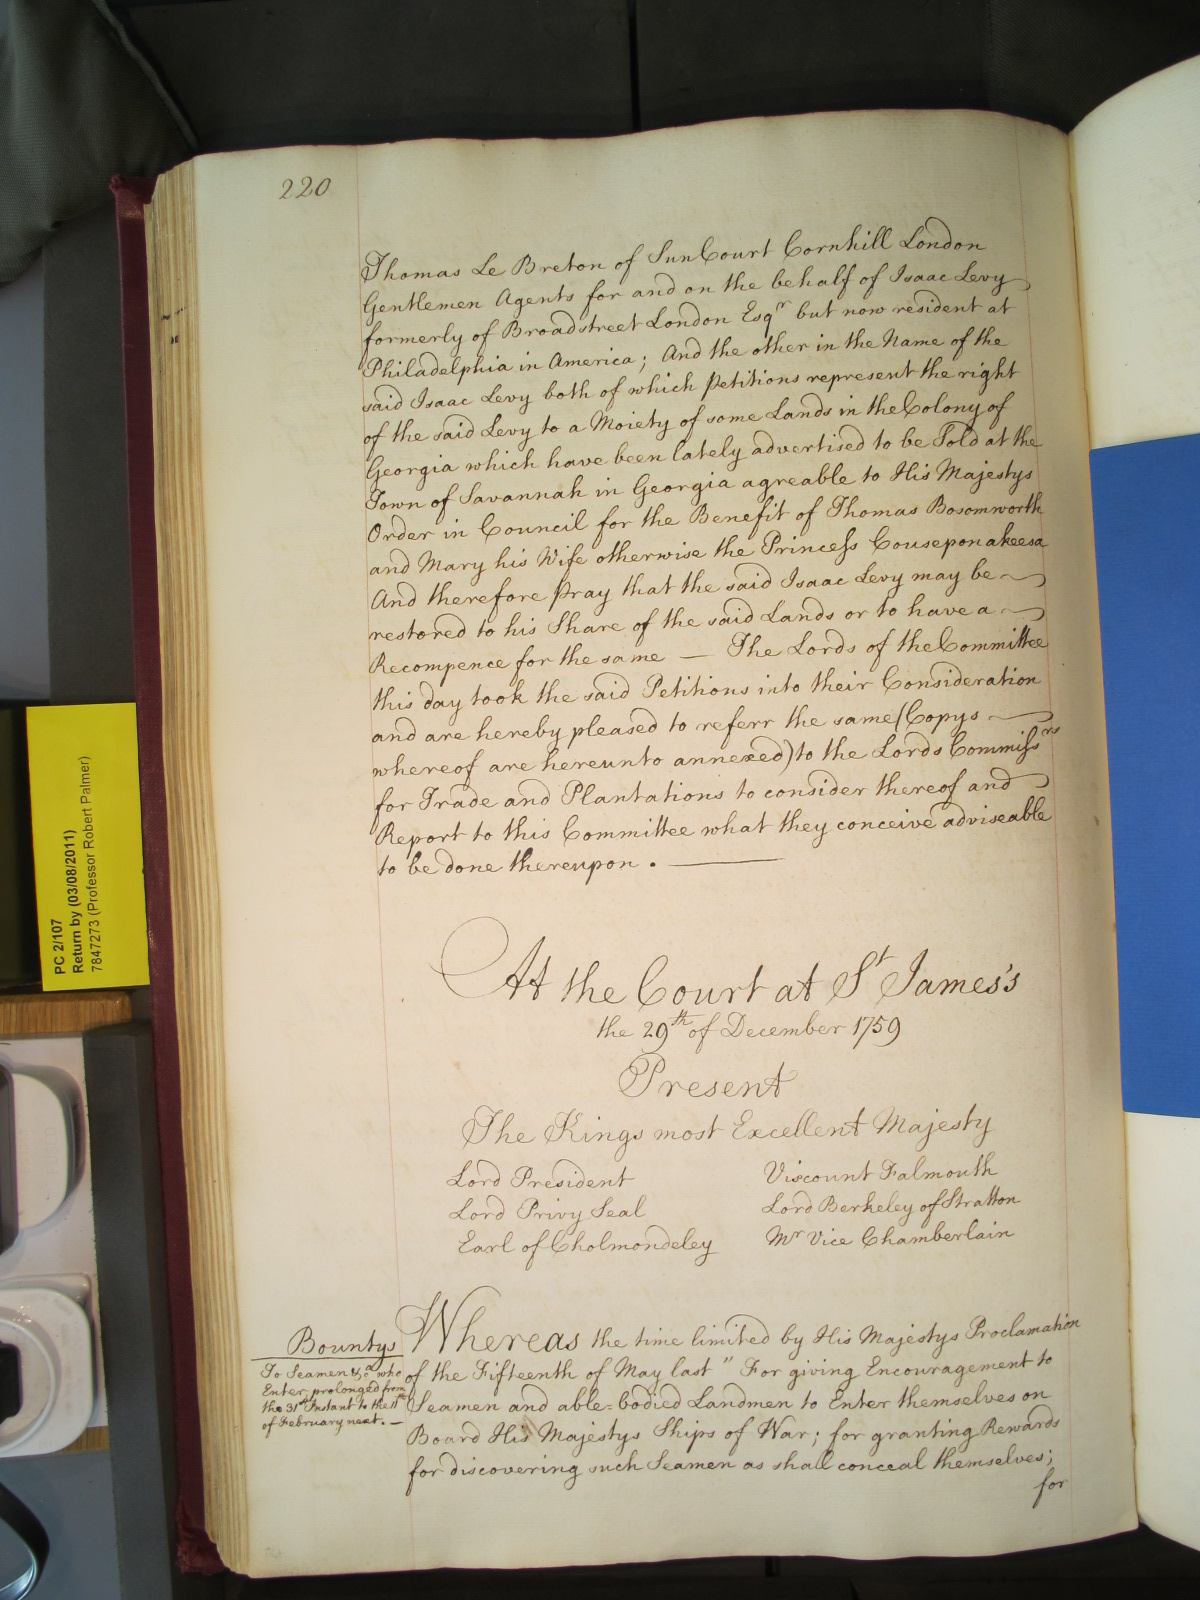 220
Thomas Le Breton of Sun Court Cornhill London
Gentlemen Agents for and on the behalf of Isaac Levy
formerly of Broadstreet London Esqr but now resident at
Philadelphia in America; And the other in the Name of the
said Isaac Levy both of which Petitions represent the right
of the said Levy to a Moiety of some Lands in the Colony of
Georgia which have been lately advertised to be Sold at the
Town of Savannah in Georgia agreable to His Majestys
Order in Council for the Benefit of Thomas Bosomworth
and Mary his Wife otherwise the Princess Couseponakeesa
And therefore Pray that the said Isaac Levy may be
restored to his Share of the said Lands or to have a
Recompence for the same — The Lords of the Committee
this day took the said Petitions into their Consideration
and are hereby pleased to referr the same (Copys
whereof are hereunto annexed) to the Lords Commissrs
for Trade and Plantations to consider thereof and
Report to this Committee what they conceive adviseable
to be done thereupon. —
At the Court at St James's
the 29th of December 1759
Present
The Kings most Excellent Majesty
Lord President
Lord Privy Seal
Earl of Cholmondeley
Viscount Falmouth
Lord Berkeley of Stratton
Mr Vice Chamberlain
Bountys
To Seamen &ca who
Enter prolonged from
the 31st Instant to the 11th
of February next. —
Whereas the time limited by His Majestys Proclamation
of the Fifteenth of May last " For giving Encouragement to
Seamen and able=bodied Landmen to Enter themselves on
Board His Majestys Ships of War; for granting Rewards
for discovering such Seamen as shall conceal themselves;
for
PC 2/107
Return by (03/08/2011)
7847273 (Professor Robert Palmer)